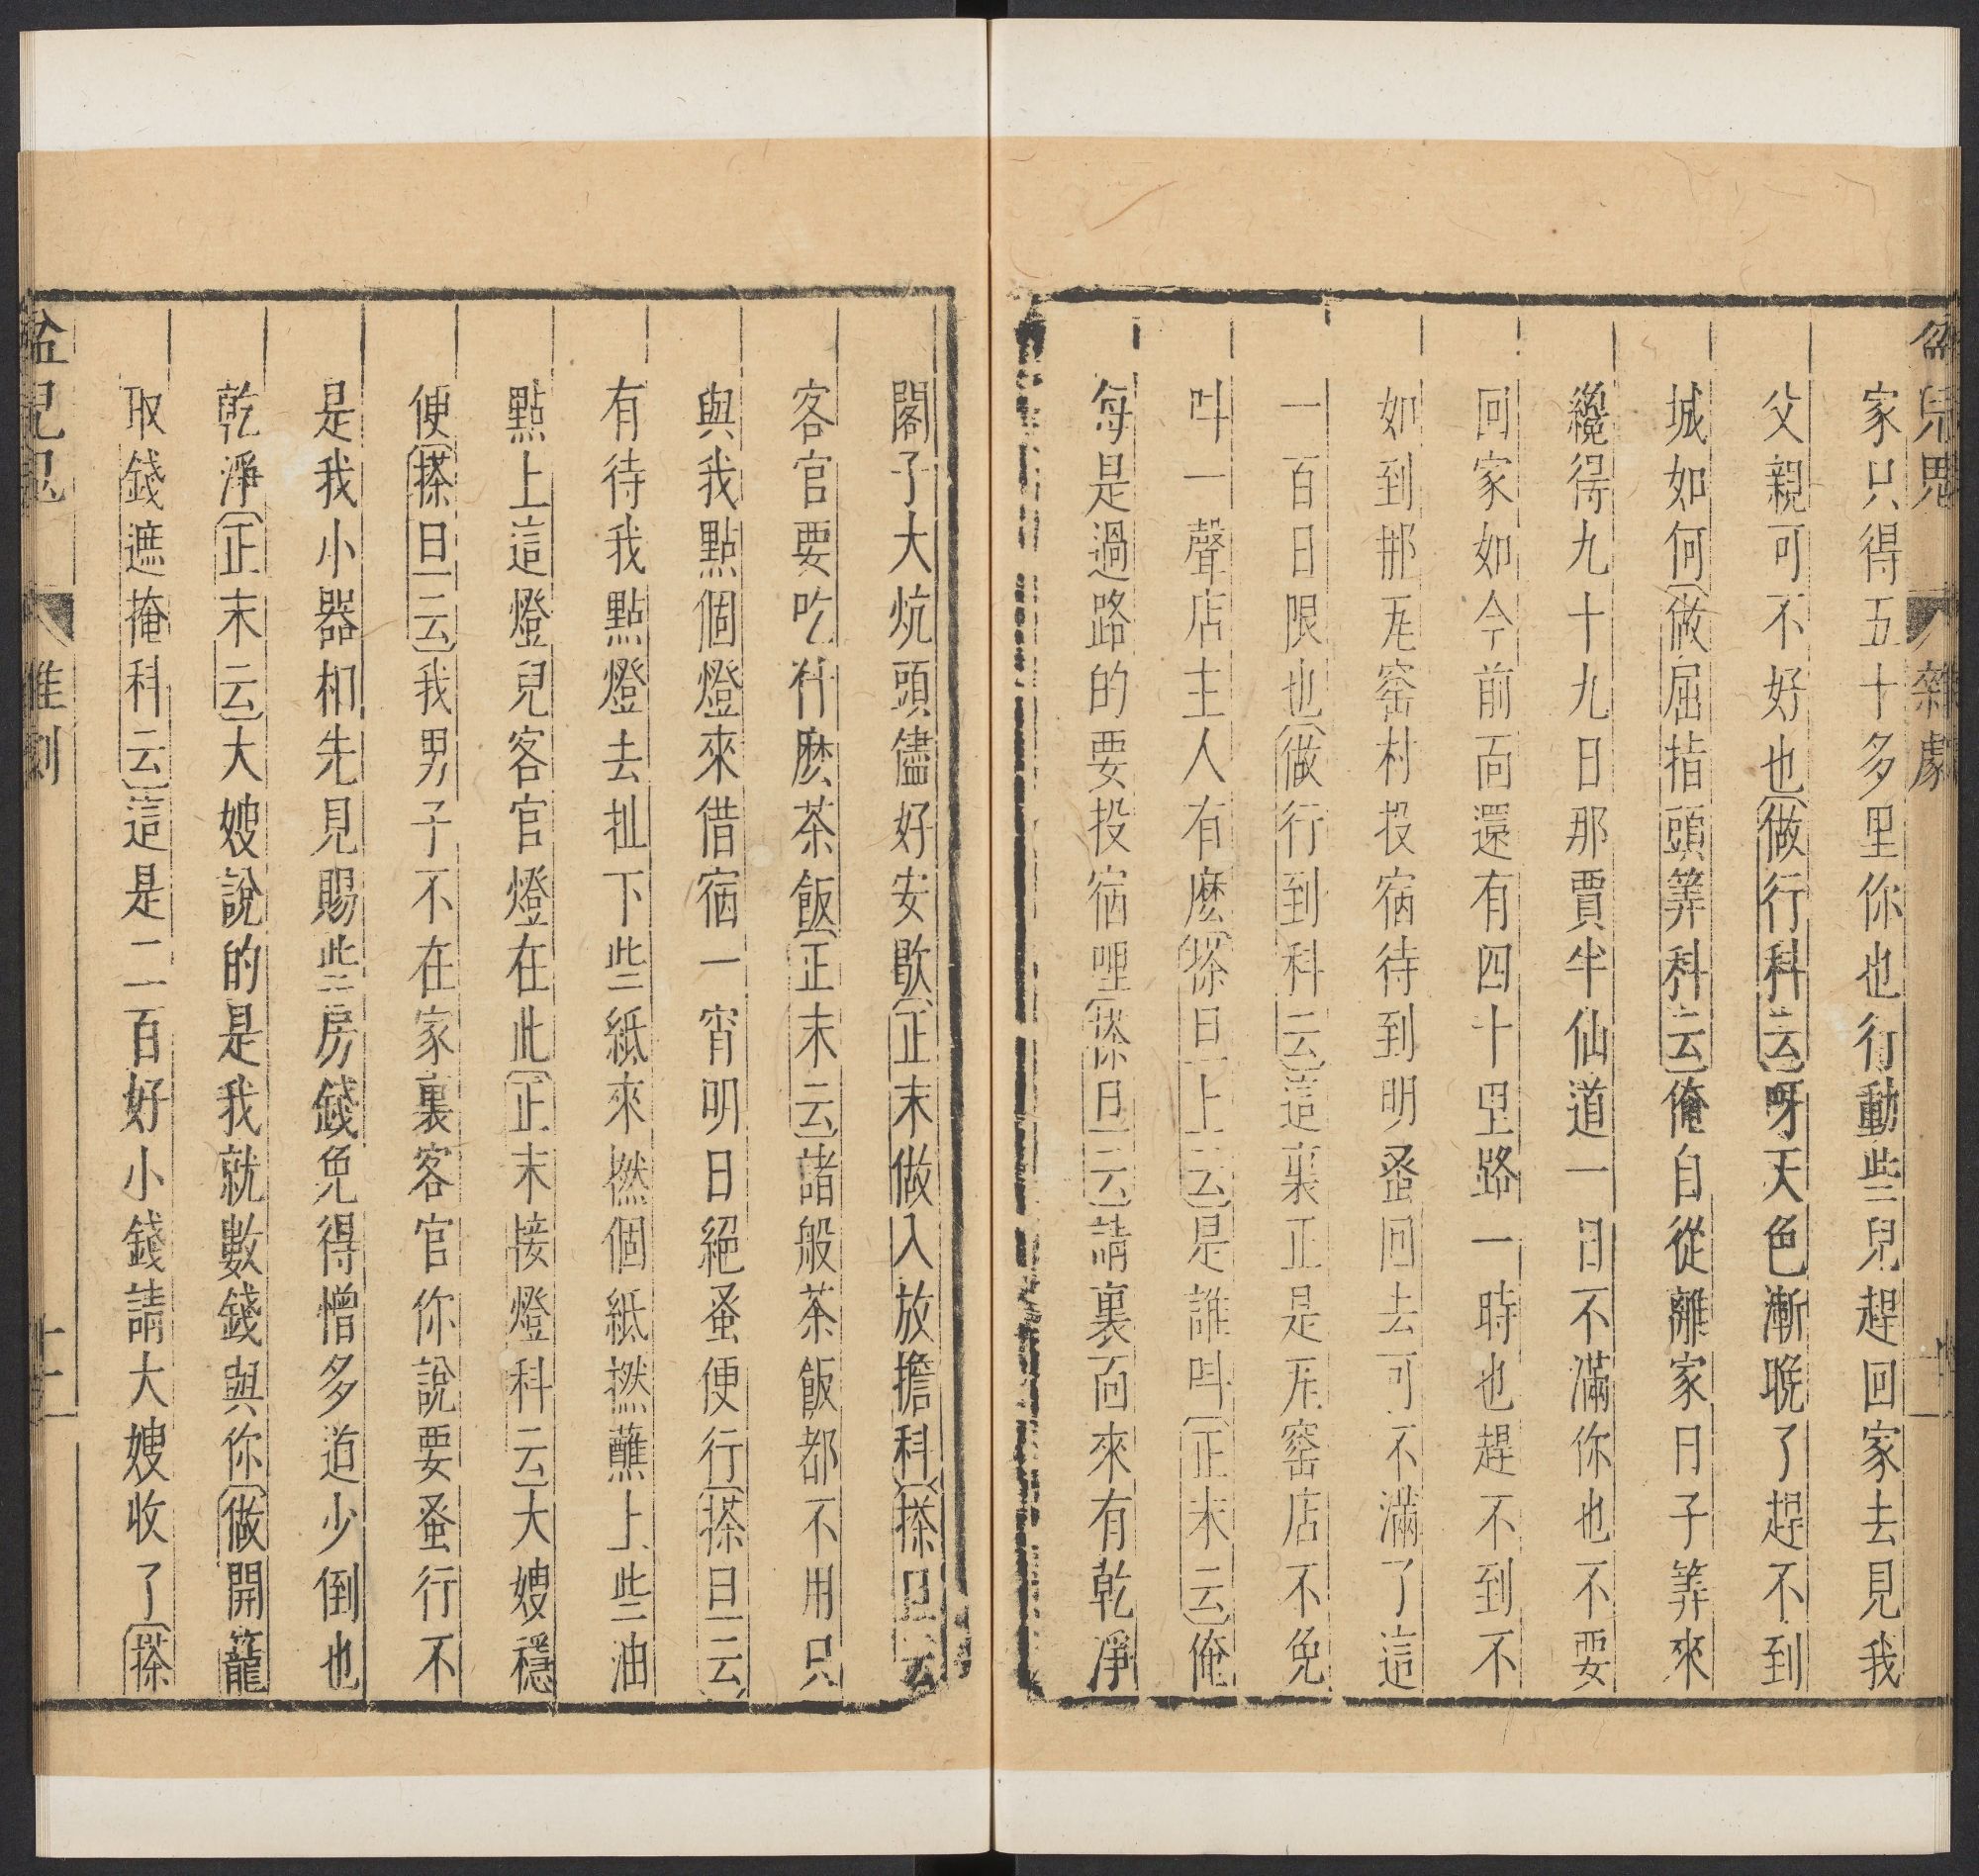 盆兒鬼 雜劇
家只得五十多里你也行動些兒趕回家去見我
父親可不好也〔做行科云〕呀天色漸晚了趕不到
城如何〔做屈指頭筭科云〕俺自從離家日子筭來
纔得九十九日那賈半仙道一日不滿你也不要
回家如今前面還有四十里路一時也趕不到不
如到那瓦窑村投宿待到明蚤回去可不滿了這
一百日限也〔做行到科云〕這裏正是瓦窑店不免
呌一聲店主人有麽〔搽旦上云〕是誰呌〔正末云〕俺
每是過路的要投宿哩〔搽旦云〕請裏面來有乾淨
閣子大炕頭儘好安歇〔正末做入放擔科〕〔搽旦云〕
客官要吃什麽茶飯〔正末云〕諸般茶飯都不用只
與我點個燈來借宿一宵明日絕蚤便行〔搽旦云〕
有待我點燈去扯下些紙來撚個紙撚蘸上些油
點上這燈兒客官燈在此〔正末接燈科云〕大嫂穩
便〔搽旦云〕我男子不在家裏客官你說要蚤行不
是我小器相先見賜些房錢免得憎多道少倒也
乾淨〔正末云〕大嫂說的是我就數錢與你〔做開籠
取錢遮掩科云〕這是二百好小錢請大嫂收了〔搽
盆兒鬼 雜劇 十二